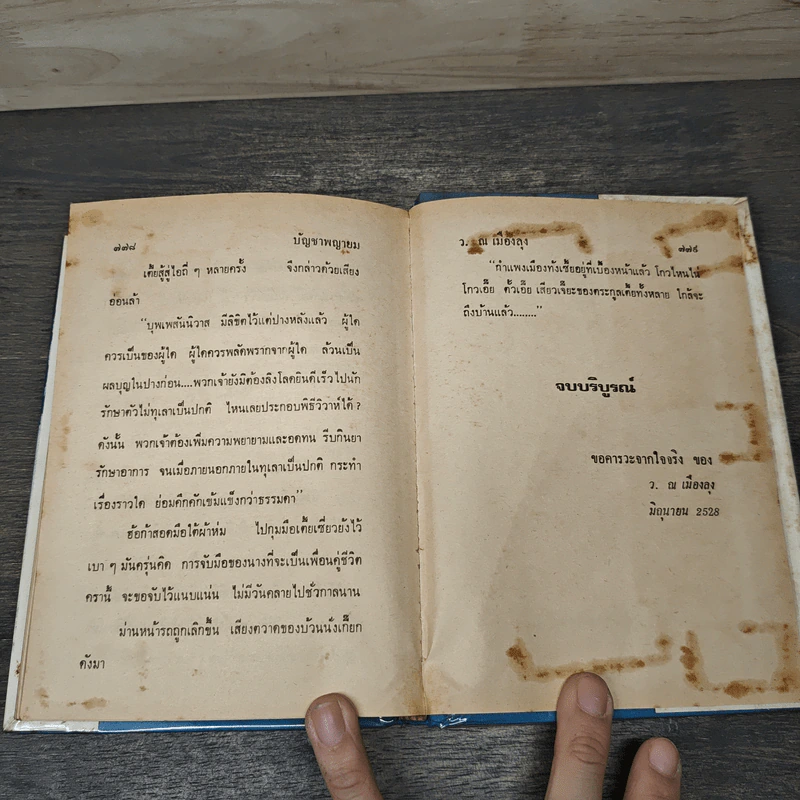 ๗๗๘ บัญชาพญายม
เตี้ยสู้สู่ไอถี่ ๆ หลายครั้ง จึงกล่าวด้วยเสียง
อ่อนล้า
"บุพเพสันนิวาส มีลิขิตไว้แต่ปางหลังแล้ว ผู้ใด
ควรเป็นของผู้ใด ผู้ใดควรพลัดพรากจากผู้ใด ล้วนเป็น
ผลบุญในปางก่อน....พวกเจ้ายังมิต้องลิงโลดยินดีเร็วไปนัก
รักษาตัวไม่ทุเลาเป็นปกติ ไหนเลยประกอบพิธีวิวาห์ได้ ?
ดังนั้น พวกเจ้าต้องเพิ่มความพยายามและอดทน รีบกินยา
รักษาอาการ จนเมื่อภายนอกภายในทุเลาเป็นปกติ กระทำ
เรื่องราวใด ย่อมคึกคักเข้มแข็งกว่าธรรมดา"
ฮ้อก้าสอดมือใต้ผ้าห่ม ไปกุมมือเตี้ยเซี่ยวยังไว้
เบา ๆ มันครุ่นคิด การจับมือของนางที่จะเป็นเพื่อนคู่ชีวิต
ครานี้ จะขอจับไว้แนบแน่น ไม่มีวันคลายไปชั่วกาลนาน
ม่านหน้ารถถูกเลิกขึ้น เสียงตวาดของบ้วนนั่งเกี๊ยก
ดังมา
ว. ณ เมืองลุง ๗๗๙
"กำแพงเมืองทั้งเซี้ยอยู่ที่เบื้องหน้าแล้ว โกวไหนไน้
โกวเอี๊ย ตั้วเอี๊ย เสียวเจี๊ยะของตระกูลเตี้ยทั้งหลาย ใกล้จะ
ถึงบ้านแล้ว........"
จบบริบูรณ์
ขอคารวะจากใจจริง ของ
ว. ณ เมืองลุง
มิถุนายน 2528